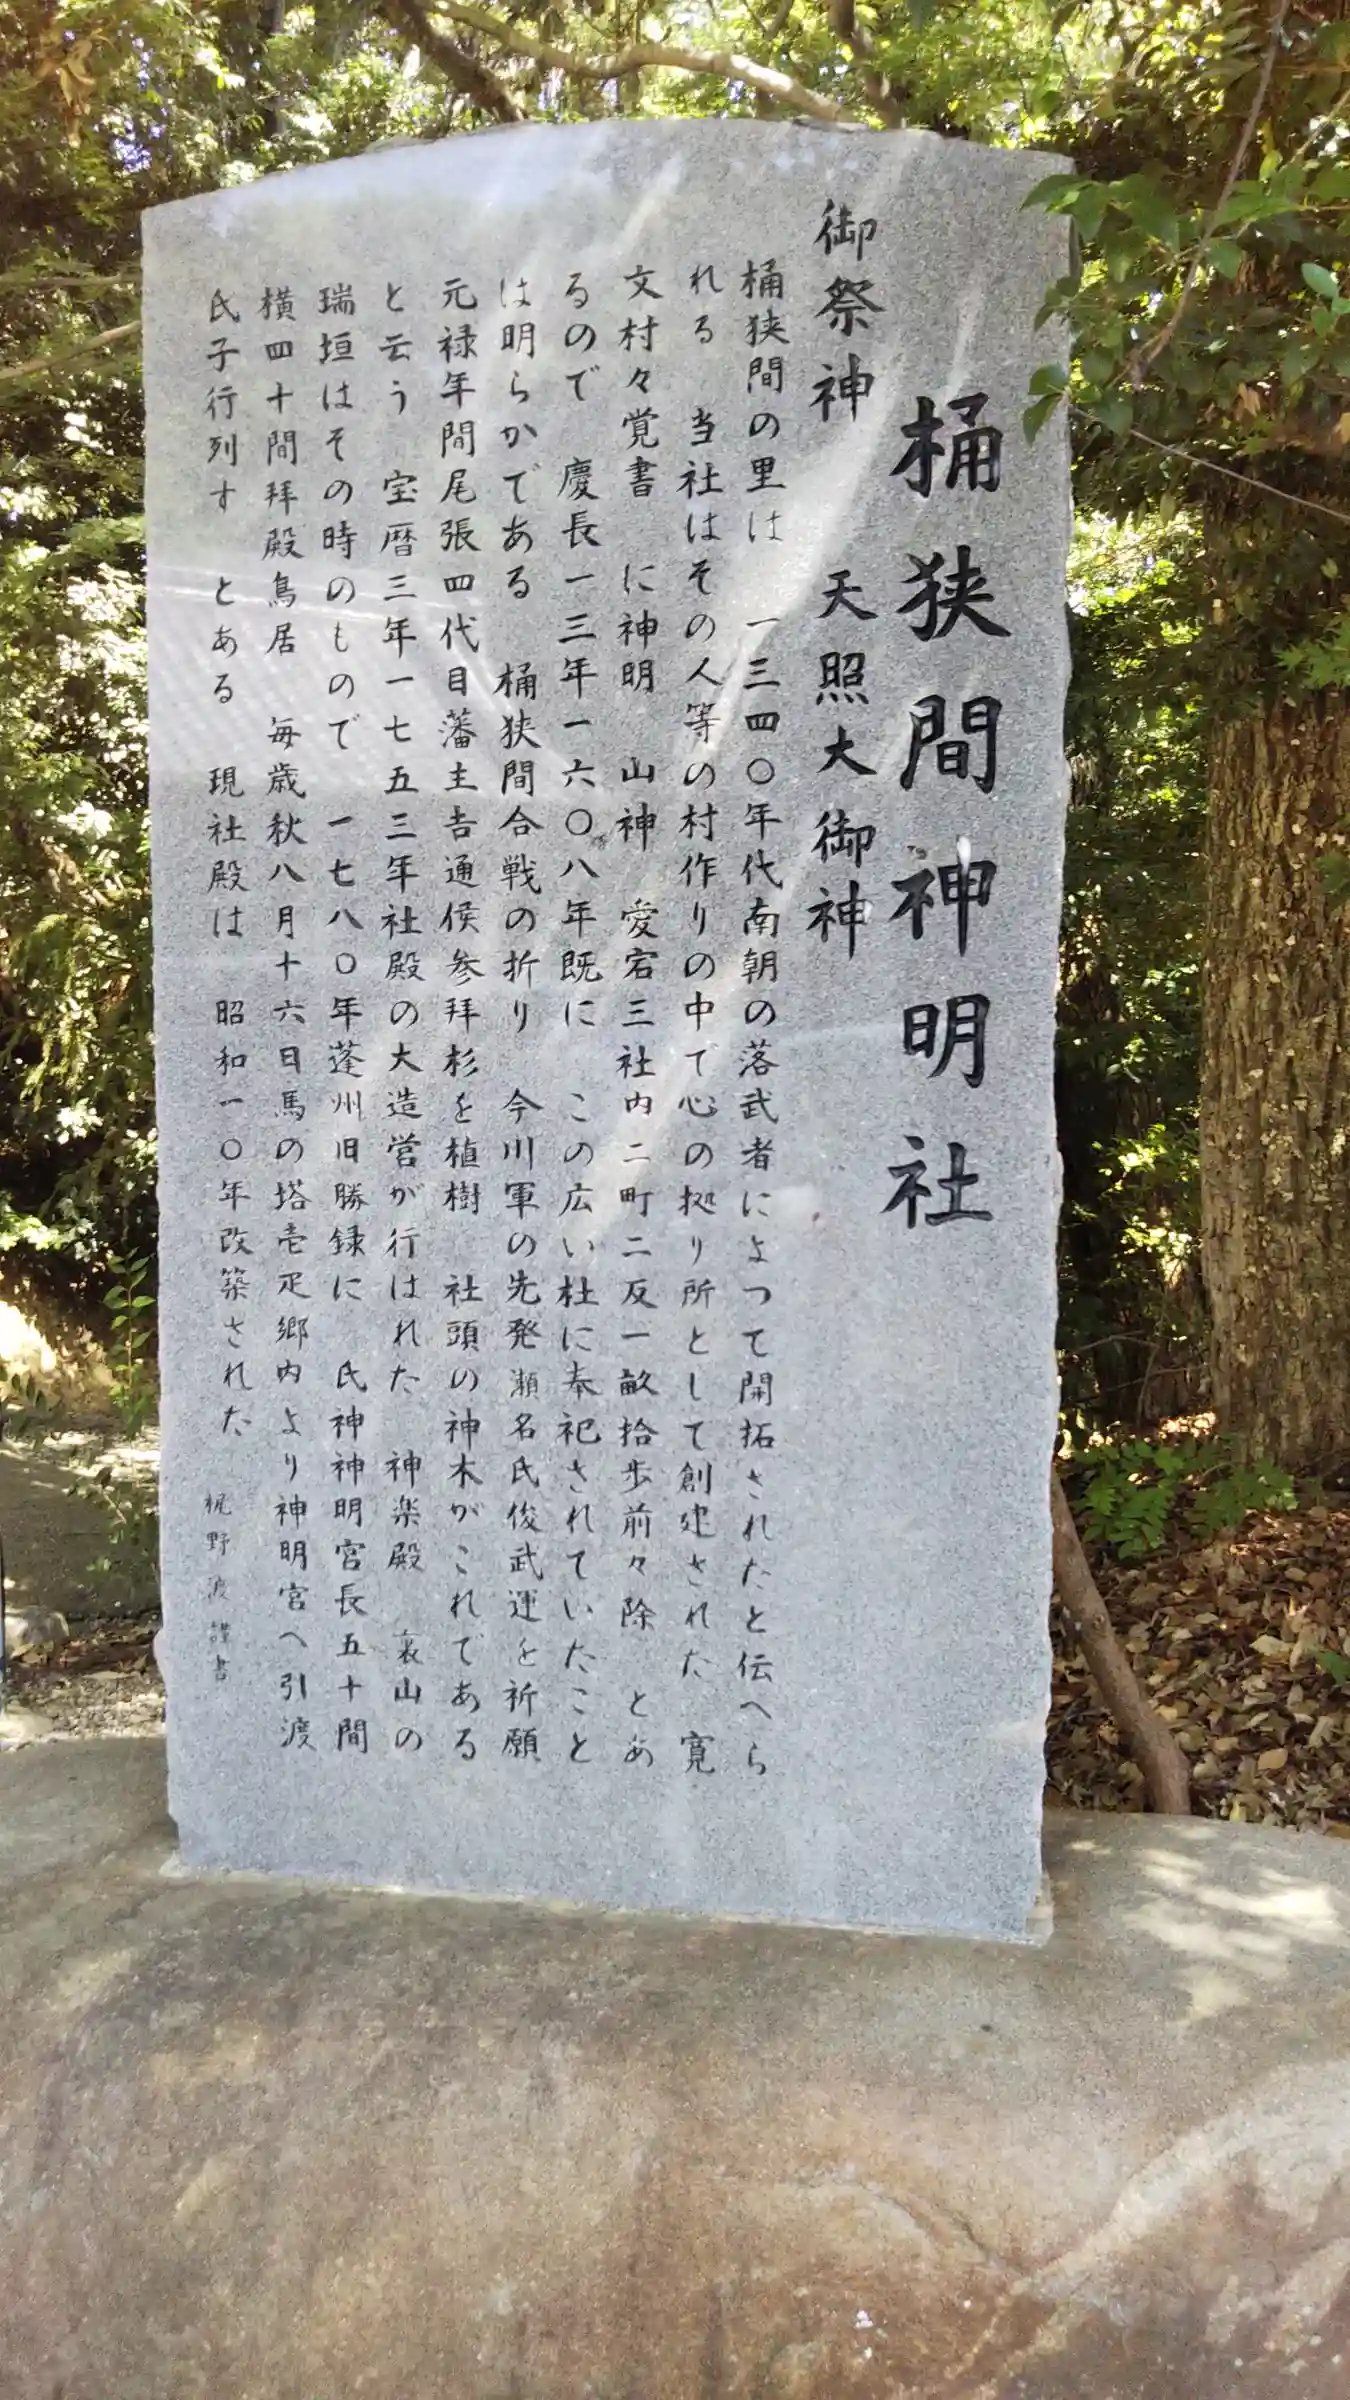 桶狭間神明社
御祭神 天照大御神
桶狭間の里は 一三四〇年代南朝の落武者によつて開拓されたと伝へら
れる 当社はその人等の村作りの中で心の拠り所として創建された 寛
文村々覚書 に神明 山神 愛宕三社内二町二反一畝拾歩前々除 とあ
るので 慶長一三年一六〇八年既に この広い杜に奉祀されていたこと
は明らかである 桶狭間合戦の折り 今川軍の先発瀬名氏俊武運を祈願
元禄年間尾張四代目藩主吉通侯参拝杉を植樹 社頭の神木がこれである
と云う 宝暦三年一七五三年社殿の大造営が行はれた 神楽殿 裏山の
瑞垣はその時のもので 一七八〇年蓬州旧勝録に 氏神神明宮長五十間
横四十間拝殿鳥居 毎歳秋八月十六日馬の塔壱疋郷内より神明宮へ引渡
氏子行列す とある 現社殿は 昭和一〇年改築された 梶野渡謹書